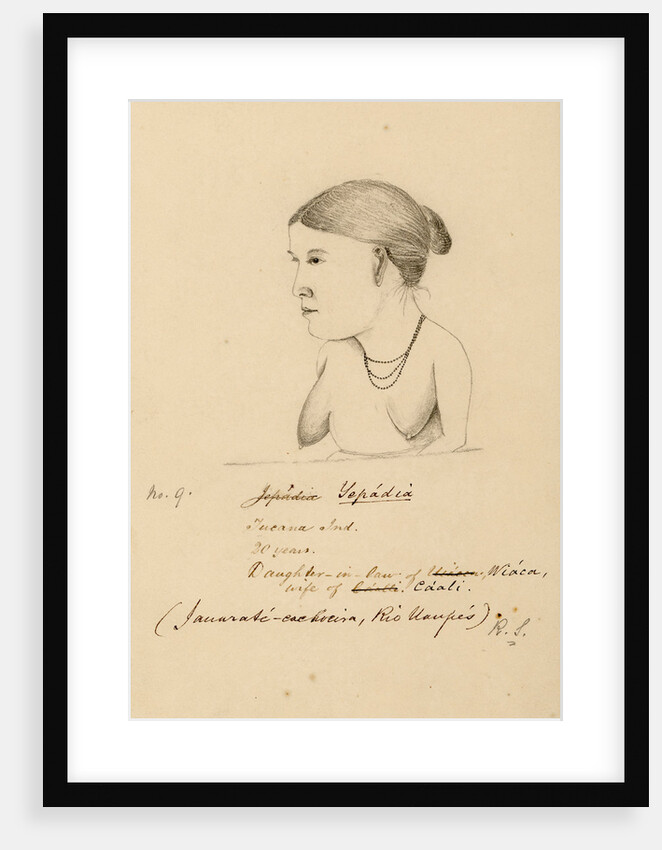 No. 9. Jepádia Yepádia
Tucana Ind.
20 years.
Daughter-in-law of Wiáca,
wife of Cáali. Cáali.
(Jauaraté-cachoeira, Rio Uaupés)
R.S.